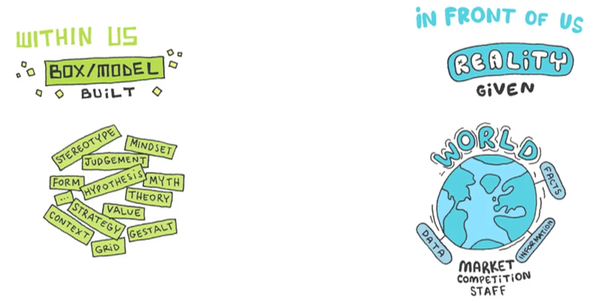 WITHIN US
BOX/MODEL
BUILT
STEREOTYPE
MINDSET
JUDGEMENT
FORM
HYPOTHESIS
MYTH
...
THEORY
STRATEGY
VALUE
CONTEXT
GESTALT
GRID
iN FRONT OF US
REALiTY
GiVEN
WORLD
FACTS
DATA
INFORMATION
MARKET
COMPETITION
STAFF